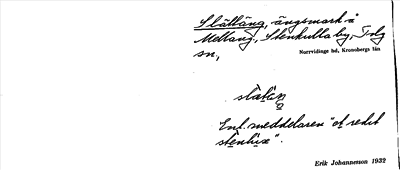 Slättäng, ängsmark å
Mellang., Stenkulla by, Tolg
sn,
Norrvidinge hd, Kronobergs län
slätäŋ
Enl. meddelaren "et redit
"
Erik Johannesson 1932